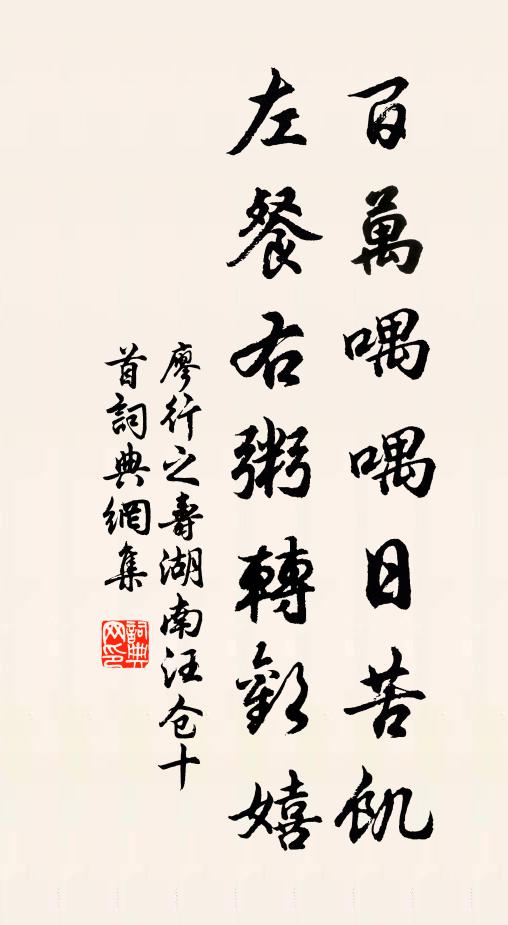 百萬喁喁日苦飢
左餐右粥轉歡嬉
廖行之壽湖南汪仓十
首詞典網集
詞典
网印